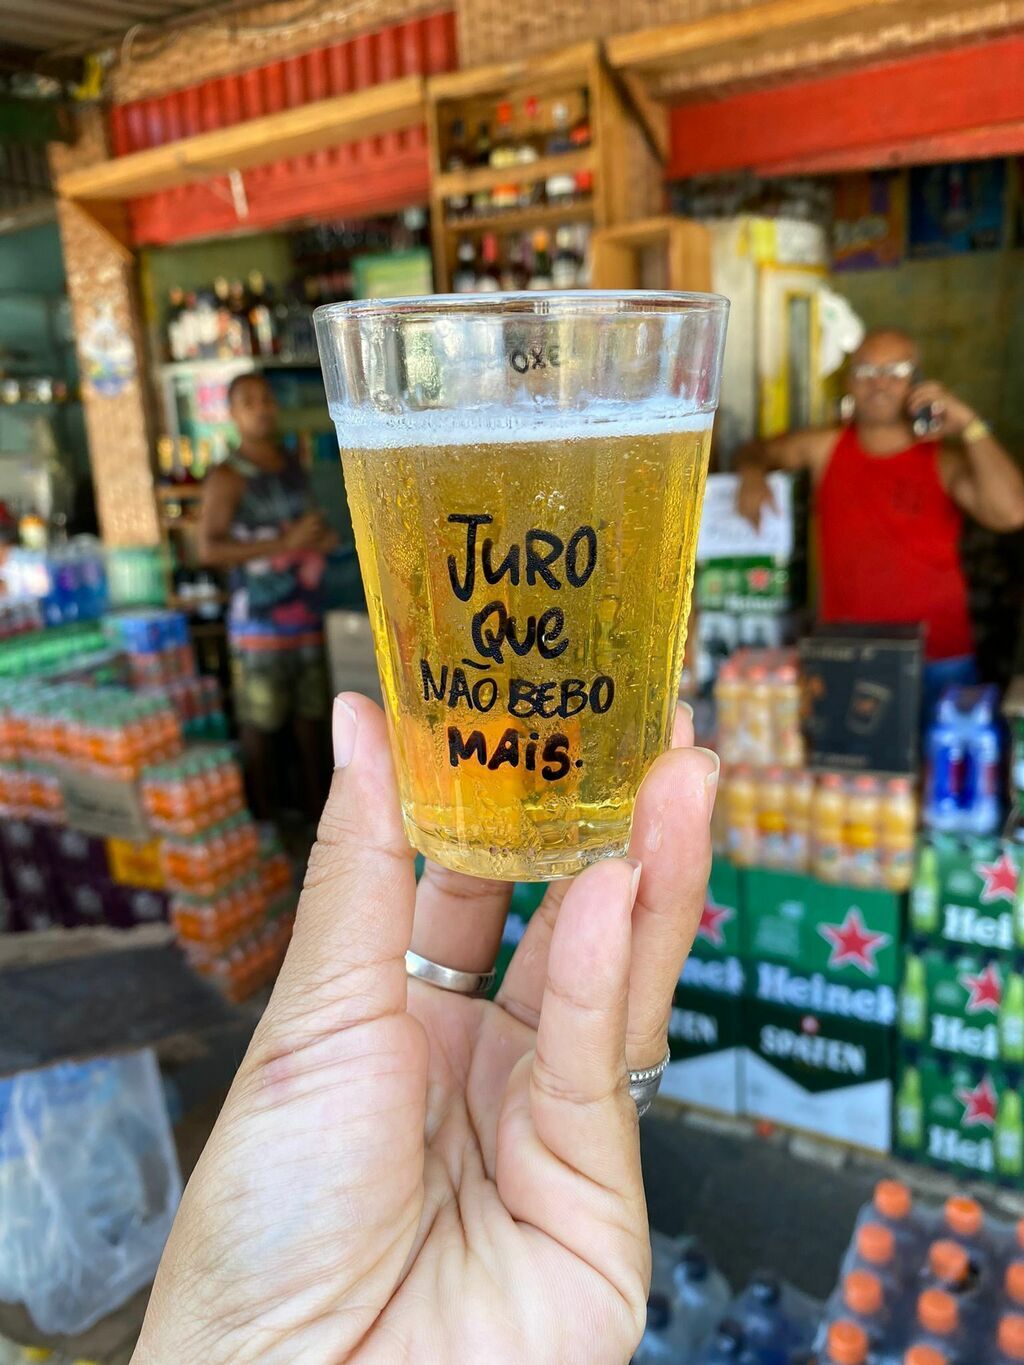 OXE
JURO
QUE
NÃO BEBO
MAIS.
Heinek
SPATEN
Hei
Hei
Hei